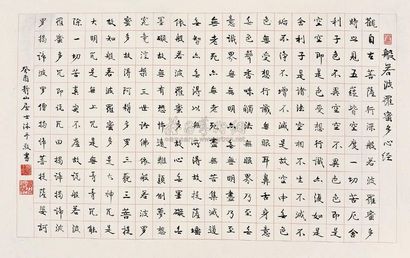 般若波羅蜜多心經
觀自在菩薩行深般若波羅蜜多
時照見五蘊皆空度一切苦厄舍
利子色不異空空不異色色即是
空空即是色受想行識亦復如是
舍利子是諸法空相不生不滅不
垢不淨不增不減是故空中無色
無受想行識無眼耳鼻舌身意無
色聲香味觸法無眼界乃至無意
識界無無明亦無無明盡乃至無
老死亦無老死盡無苦集滅道無
智亦無得以無所得故菩提薩埵
依般若波羅蜜多故心無罣礙無
罣礙故無有恐怖遠離顛倒夢想
究竟涅槃三世諸佛依般若波羅
蜜多故得阿耨多羅三藐三菩提
故知般若波羅蜜多是大神咒是
大明咒是無上咒是無等等咒能
除一切苦真實不虛故說般若波
羅蜜多咒即說咒曰揭諦揭諦波
羅揭諦波羅僧揭諦菩提薩婆訶
癸酉靜山居士敬書